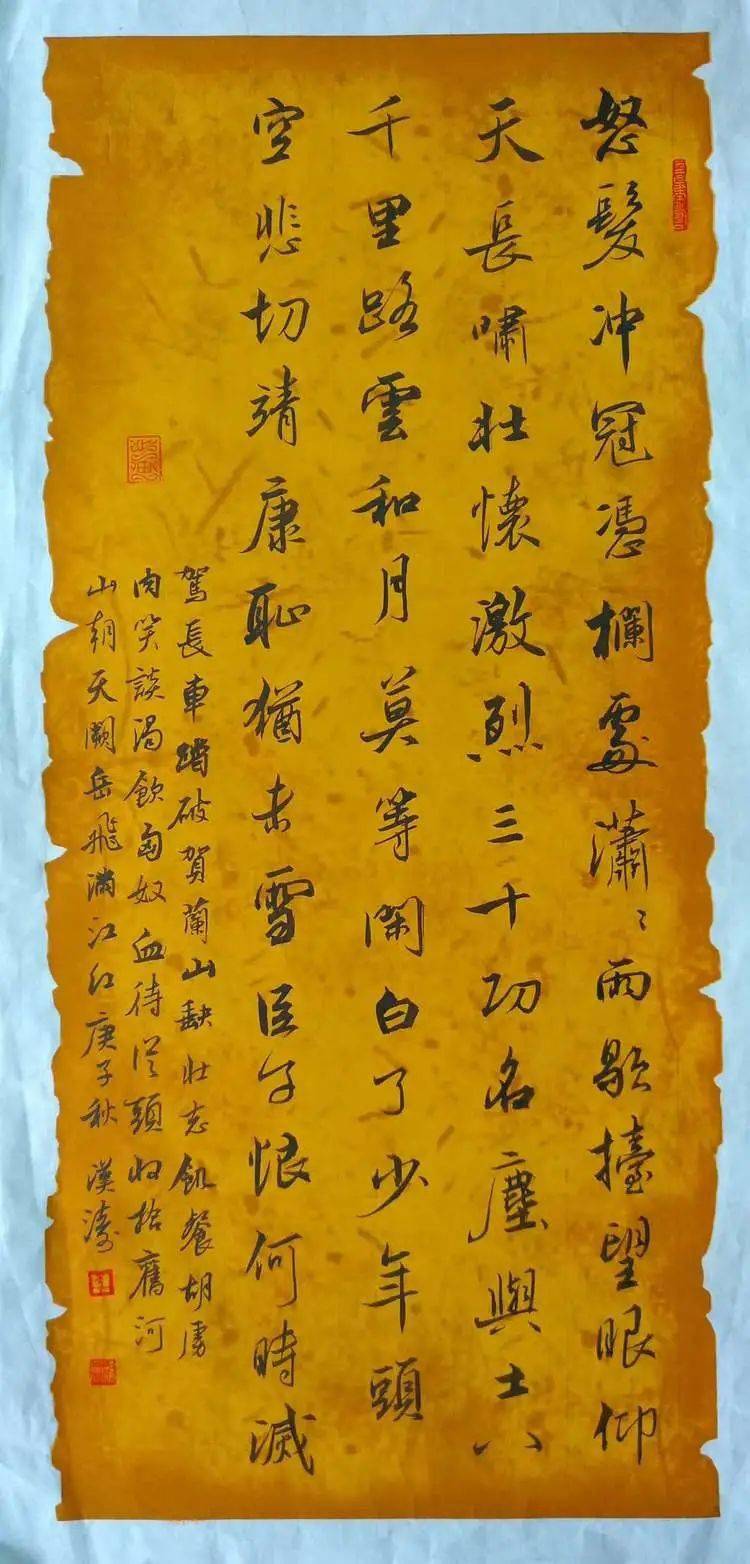 怒髮冲冠憑欄處瀟〻雨歇擡望眼仰
天長嘯壯懷激烈三十功名塵與土八
千里路雲和月莫等閑白了少年頭
空悲切靖康恥猶未雪臣子恨何時滅
駕長車踏破賀蘭山缺壯志飢餐胡虜
肉笑談渴飲匈奴血待從頭收拾舊河
山朝天闕岳飛滿江紅庚子秋 漢濤